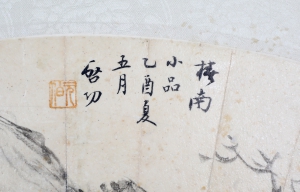 椿南
小品
乙酉夏
五月
啓功